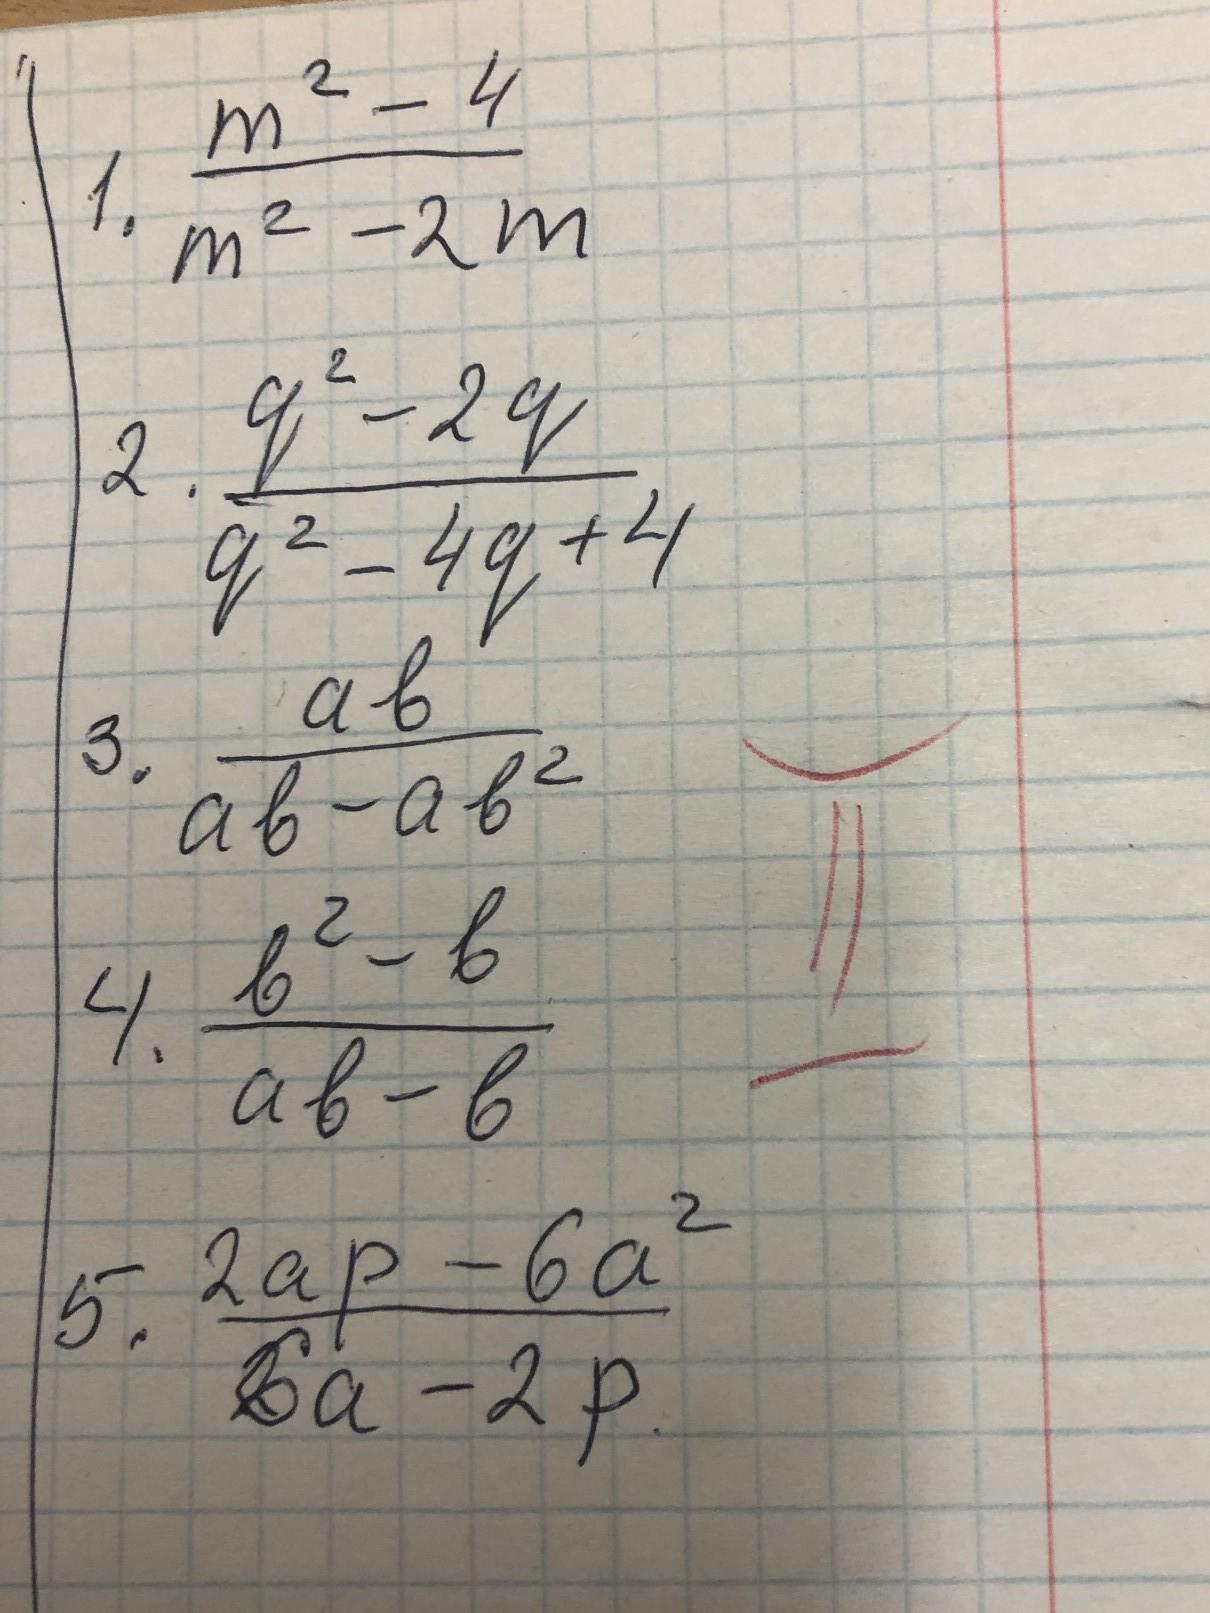 1. (m² - 4) / (m² - 2m)
2. (q² - 2q) / (q² - 4q + 4)
3. ab / (ab - ab²)
4. (b² - b) / (ab - b)
5. (2ap - 6a²) / (6a - 2p).